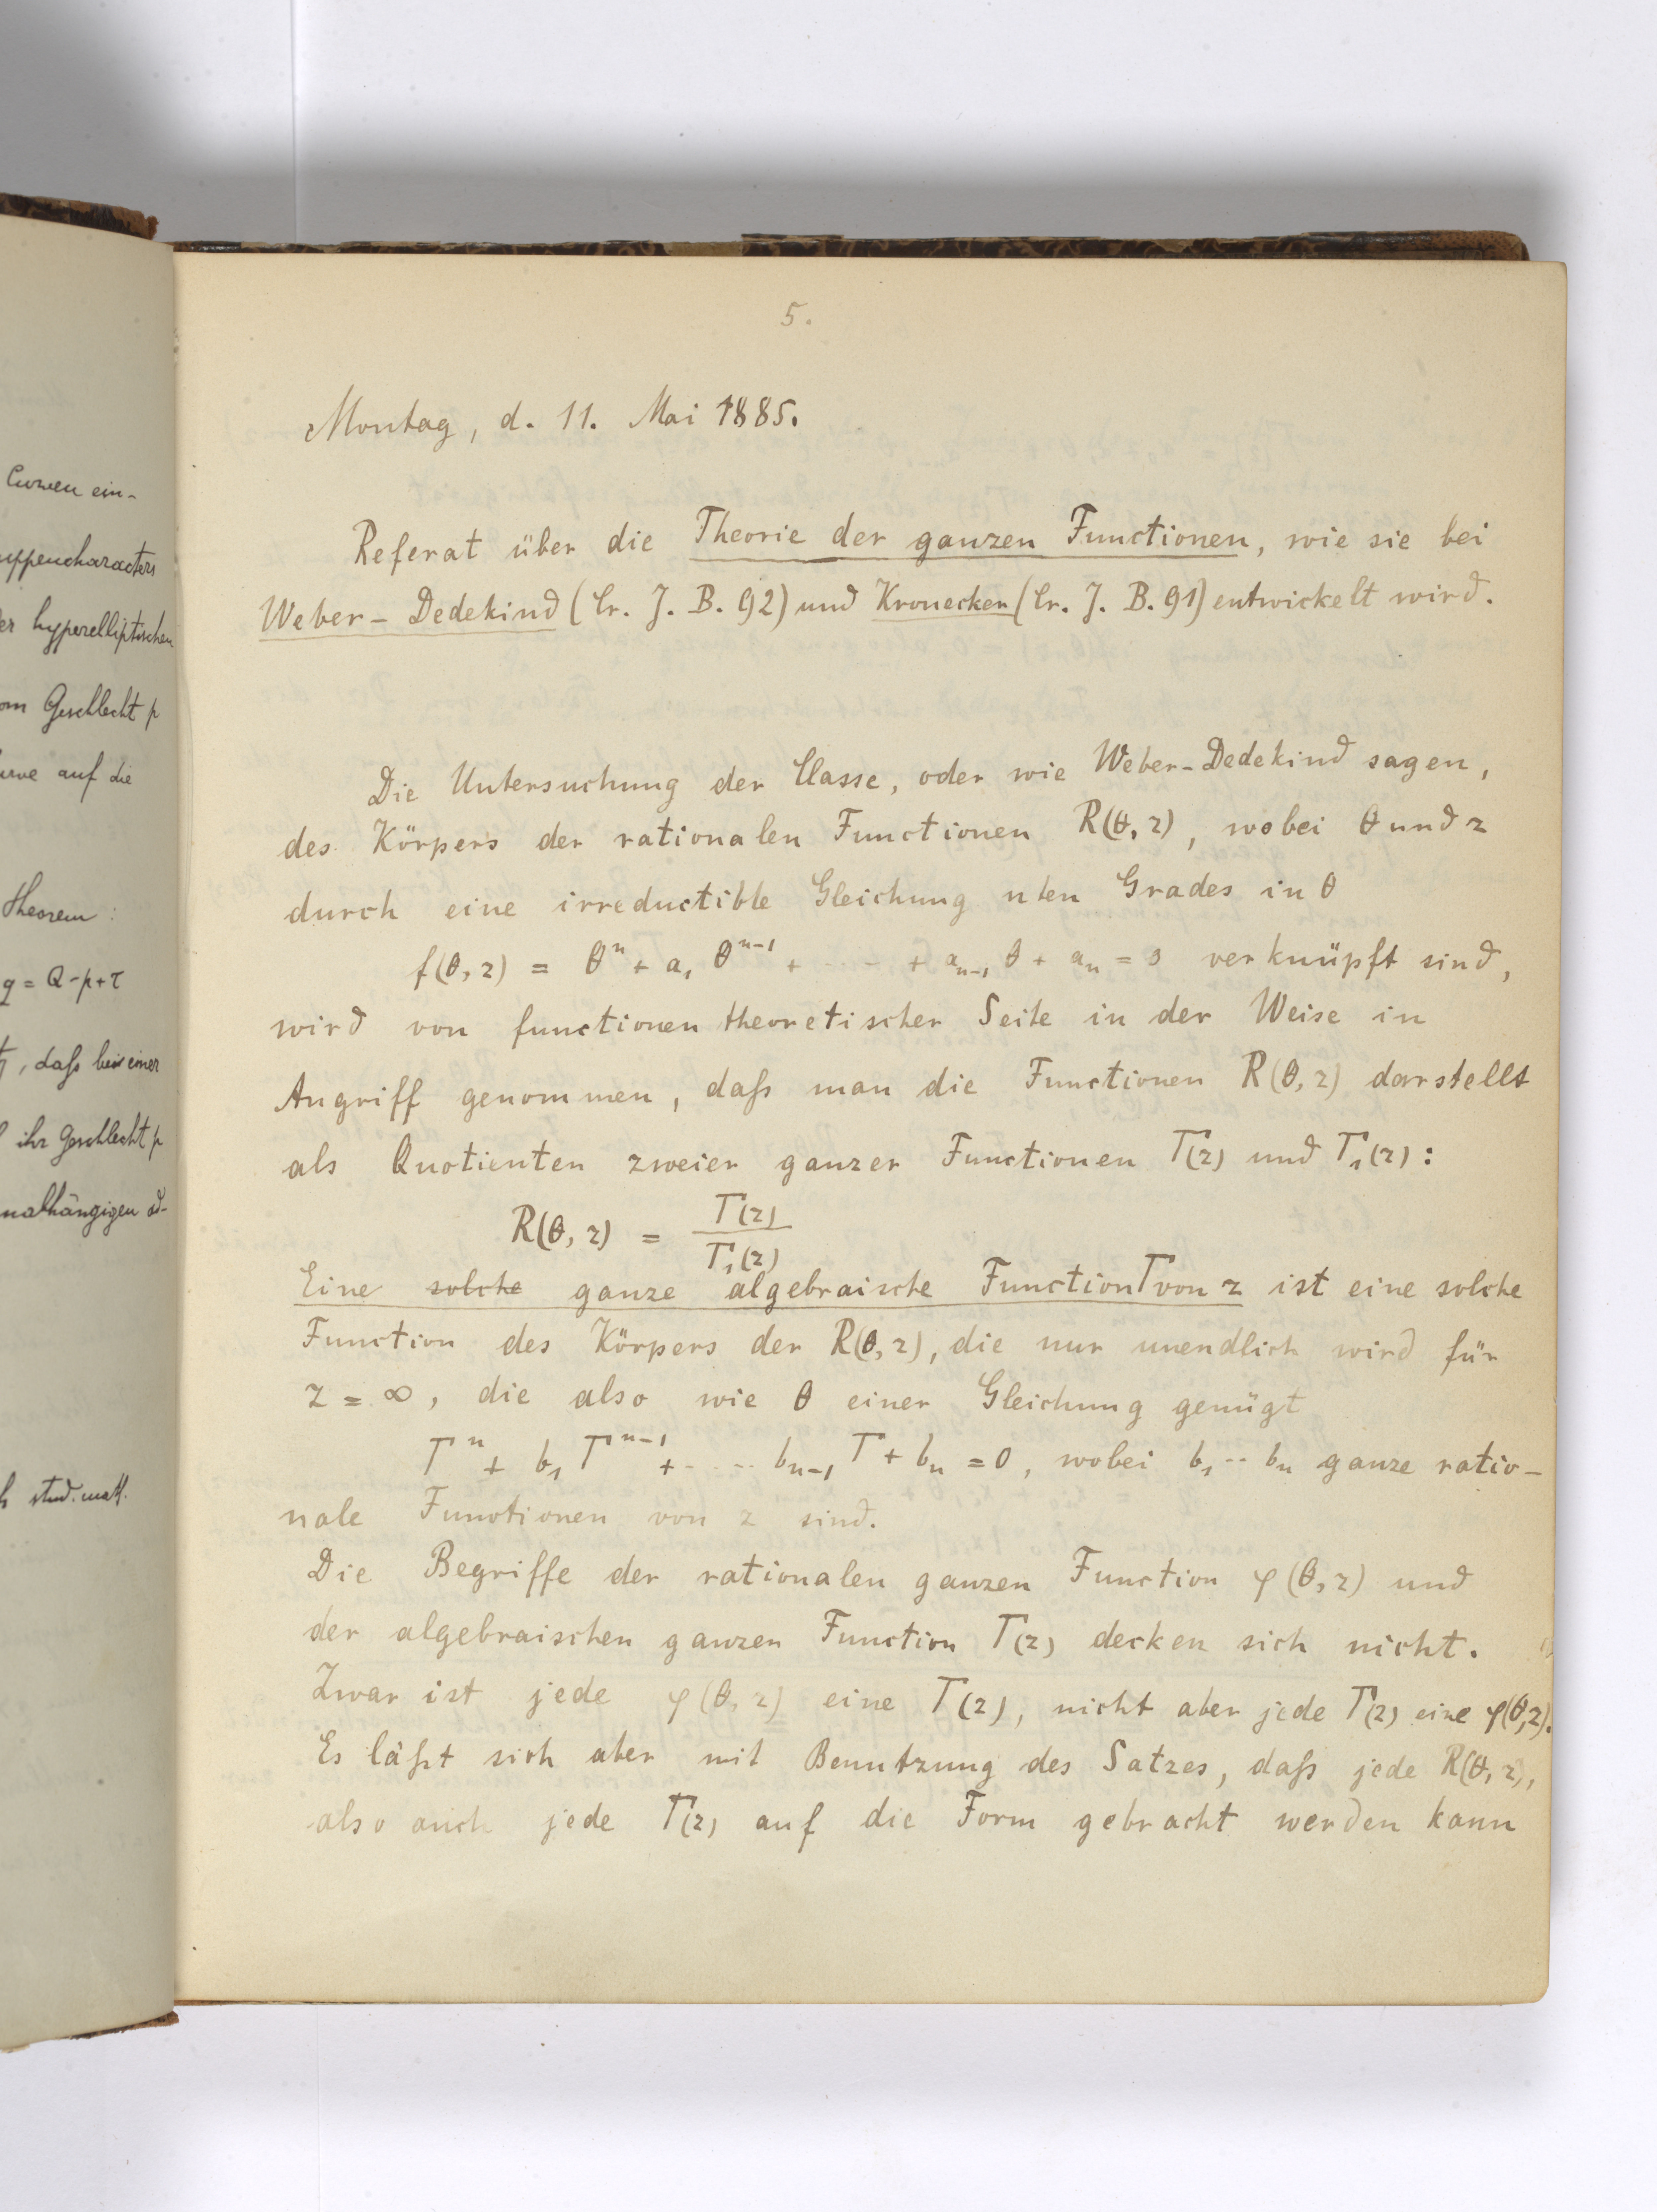 Curven ein-
uppencharacters
er hyperelliptischen
om Geschlecht p
urve auf die
Theorem:
q = Q-p+τ
, daſs bei einer
ihr Geschlecht p
nabhängigen
stud. math.
5.
Montag, d. 11. Mai 1885.
Referat über die Theorie der ganzen Functionen, wie sie bei
Weber-Dedekind (Cr. J. B. 92) und Kronecker (Cr. J. B. 91) entwickelt wird.
Die Untersuchung der Classe, oder wie Weber-Dedekind sagen,
des Körpers der rationalen Functionen R(θ, z), wobei θ und z
durch eine irreductible Gleichung nten Grades in θ
f(θ, z) = θⁿ + a₁ θⁿ⁻¹ + ---- + aₙ₋₁ θ + aₙ = 0 verknüpft sind,
wird von functionentheoretischer Seite in der Weise in
Angriff genommen, daſs man die Functionen R(θ, z) darstellt
als Quotienten zweier ganzer Functionen T(z) und T₁(z):
R(θ, z) = T(z) / T₁(z)
Eine solche ganze algebraische Function T von z ist eine solche
Function des Körpers der R(θ, z), die nur unendlich wird für
z = ∞, die also wie θ einer Gleichung genügt
Tⁿ + b₁ Tⁿ⁻¹ + ---- bₙ₋₁ T + bₙ = 0, wobei b₁ -- bₙ ganze ratio-
nale Functionen von z sind.
Die Begriffe der rationalen ganzen Function φ(θ, z) und
der algebraischen ganzen Function T(z) decken sich nicht.
Zwar ist jede φ(θ, z) eine T(z), nicht aber jede T(z) eine φ(θ, z).
Es läſst sich aber mit Benutzung des Satzes, daſs jede R(θ, z),
also auch jede T(z) auf die Form gebracht werden kann